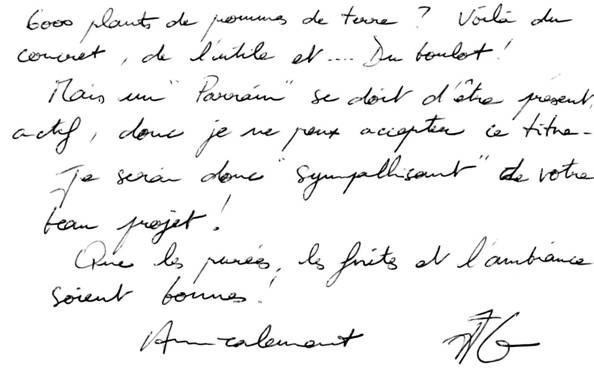 6000 plants de pommes de terre ? Voilà du
concret, de l'utile et .... Du boulot !
Mais un "Parrain" se doit d'être présent,
actif, donc je ne peux accepter ce titre -
Je serai donc "sympathisant" de votre
beau projet !
Que les purées, les frites et l'ambiance
soient bonnes !
Amicalement